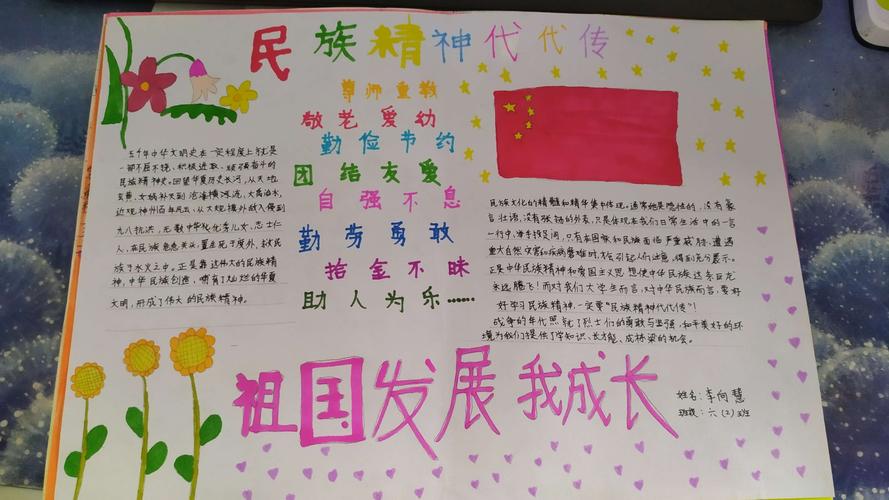 民族精神代代传
尊师重教
敬老爱幼
勤俭节约
团结友爱
自强不息
勤劳勇敢
拾金不昧
助人为乐……
五千年中华文明史在一定程度上就是
一部不屈不挠、积极进取、顽强奋斗的
民族精神史。回望华夏历史长河，从天地
玄黄、女娲补天到沧海横流，大禹治水，
近观神州百年风云，从大规模外敌入侵到
九八抗洪，无数中华优秀儿女、志士仁
人，在民族危急关头，置生死于度外，救民
族于水火之中。正是靠这伟大的民族精
神，中华民族创造，哺育了灿烂的华夏
文明，形成了伟大的民族精神。
民族文化的精髓和精华集中体现。通常她是隐性的，没有豪
言壮语，没有张扬的外表，只是体现在我们日常生活中的一言
一行中，举手投足间，只有在国家和民族面临严重威胁、遭遇
重大自然灾害和疾病磨难时，才会引起人们注意，得到充分展示。
正是中华民族精神和爱国主义思想使中华民族这条巨龙
永远腾飞！而对我们大学生而言，对中华民族而言，要好
好学习民族精神，一定要“民族精神代代传”！
战争的年代照就了烈士们的勇敢与坚强，和平美好的环
境为我们提供了学知识、长才能、成栋梁的机会。
祖国发展我成长
姓名：李向慧
班级：六（2）班